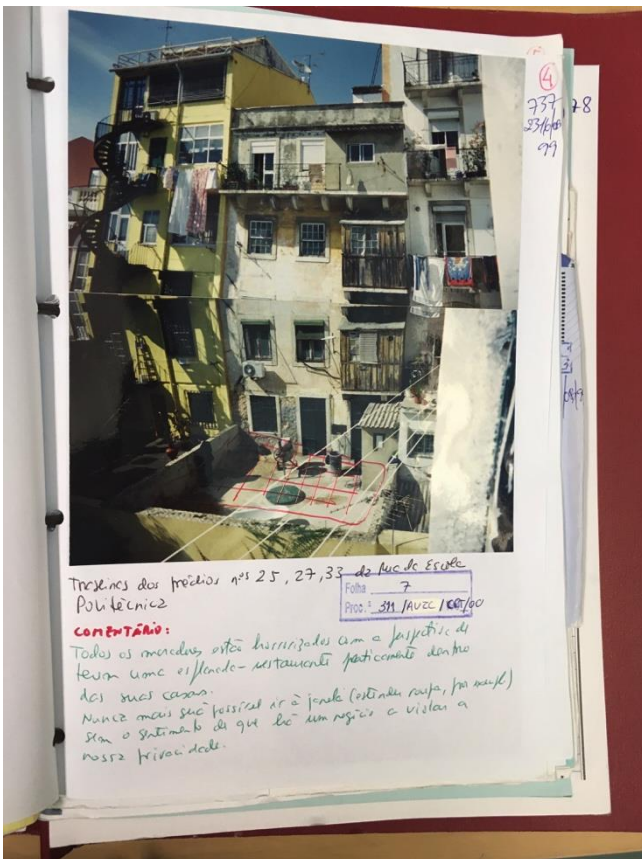 4
737
99
78
Traseiras dos prédios nºs 25, 27, 33 da Rua da Escola
Politécnica
Folha 7
Proc.º 311 /AUZC/ /00
COMENTÁRIO:
Todos os moradores estão horrorizados com a perspetiva de
terem uma esplanada-restaurante praticamente dentro
das suas casas.
Nunca mais será possível ir à janela (estender roupa, por exempl)
sem o sentimento de que há um negócio a violar a
nossa privacidade.